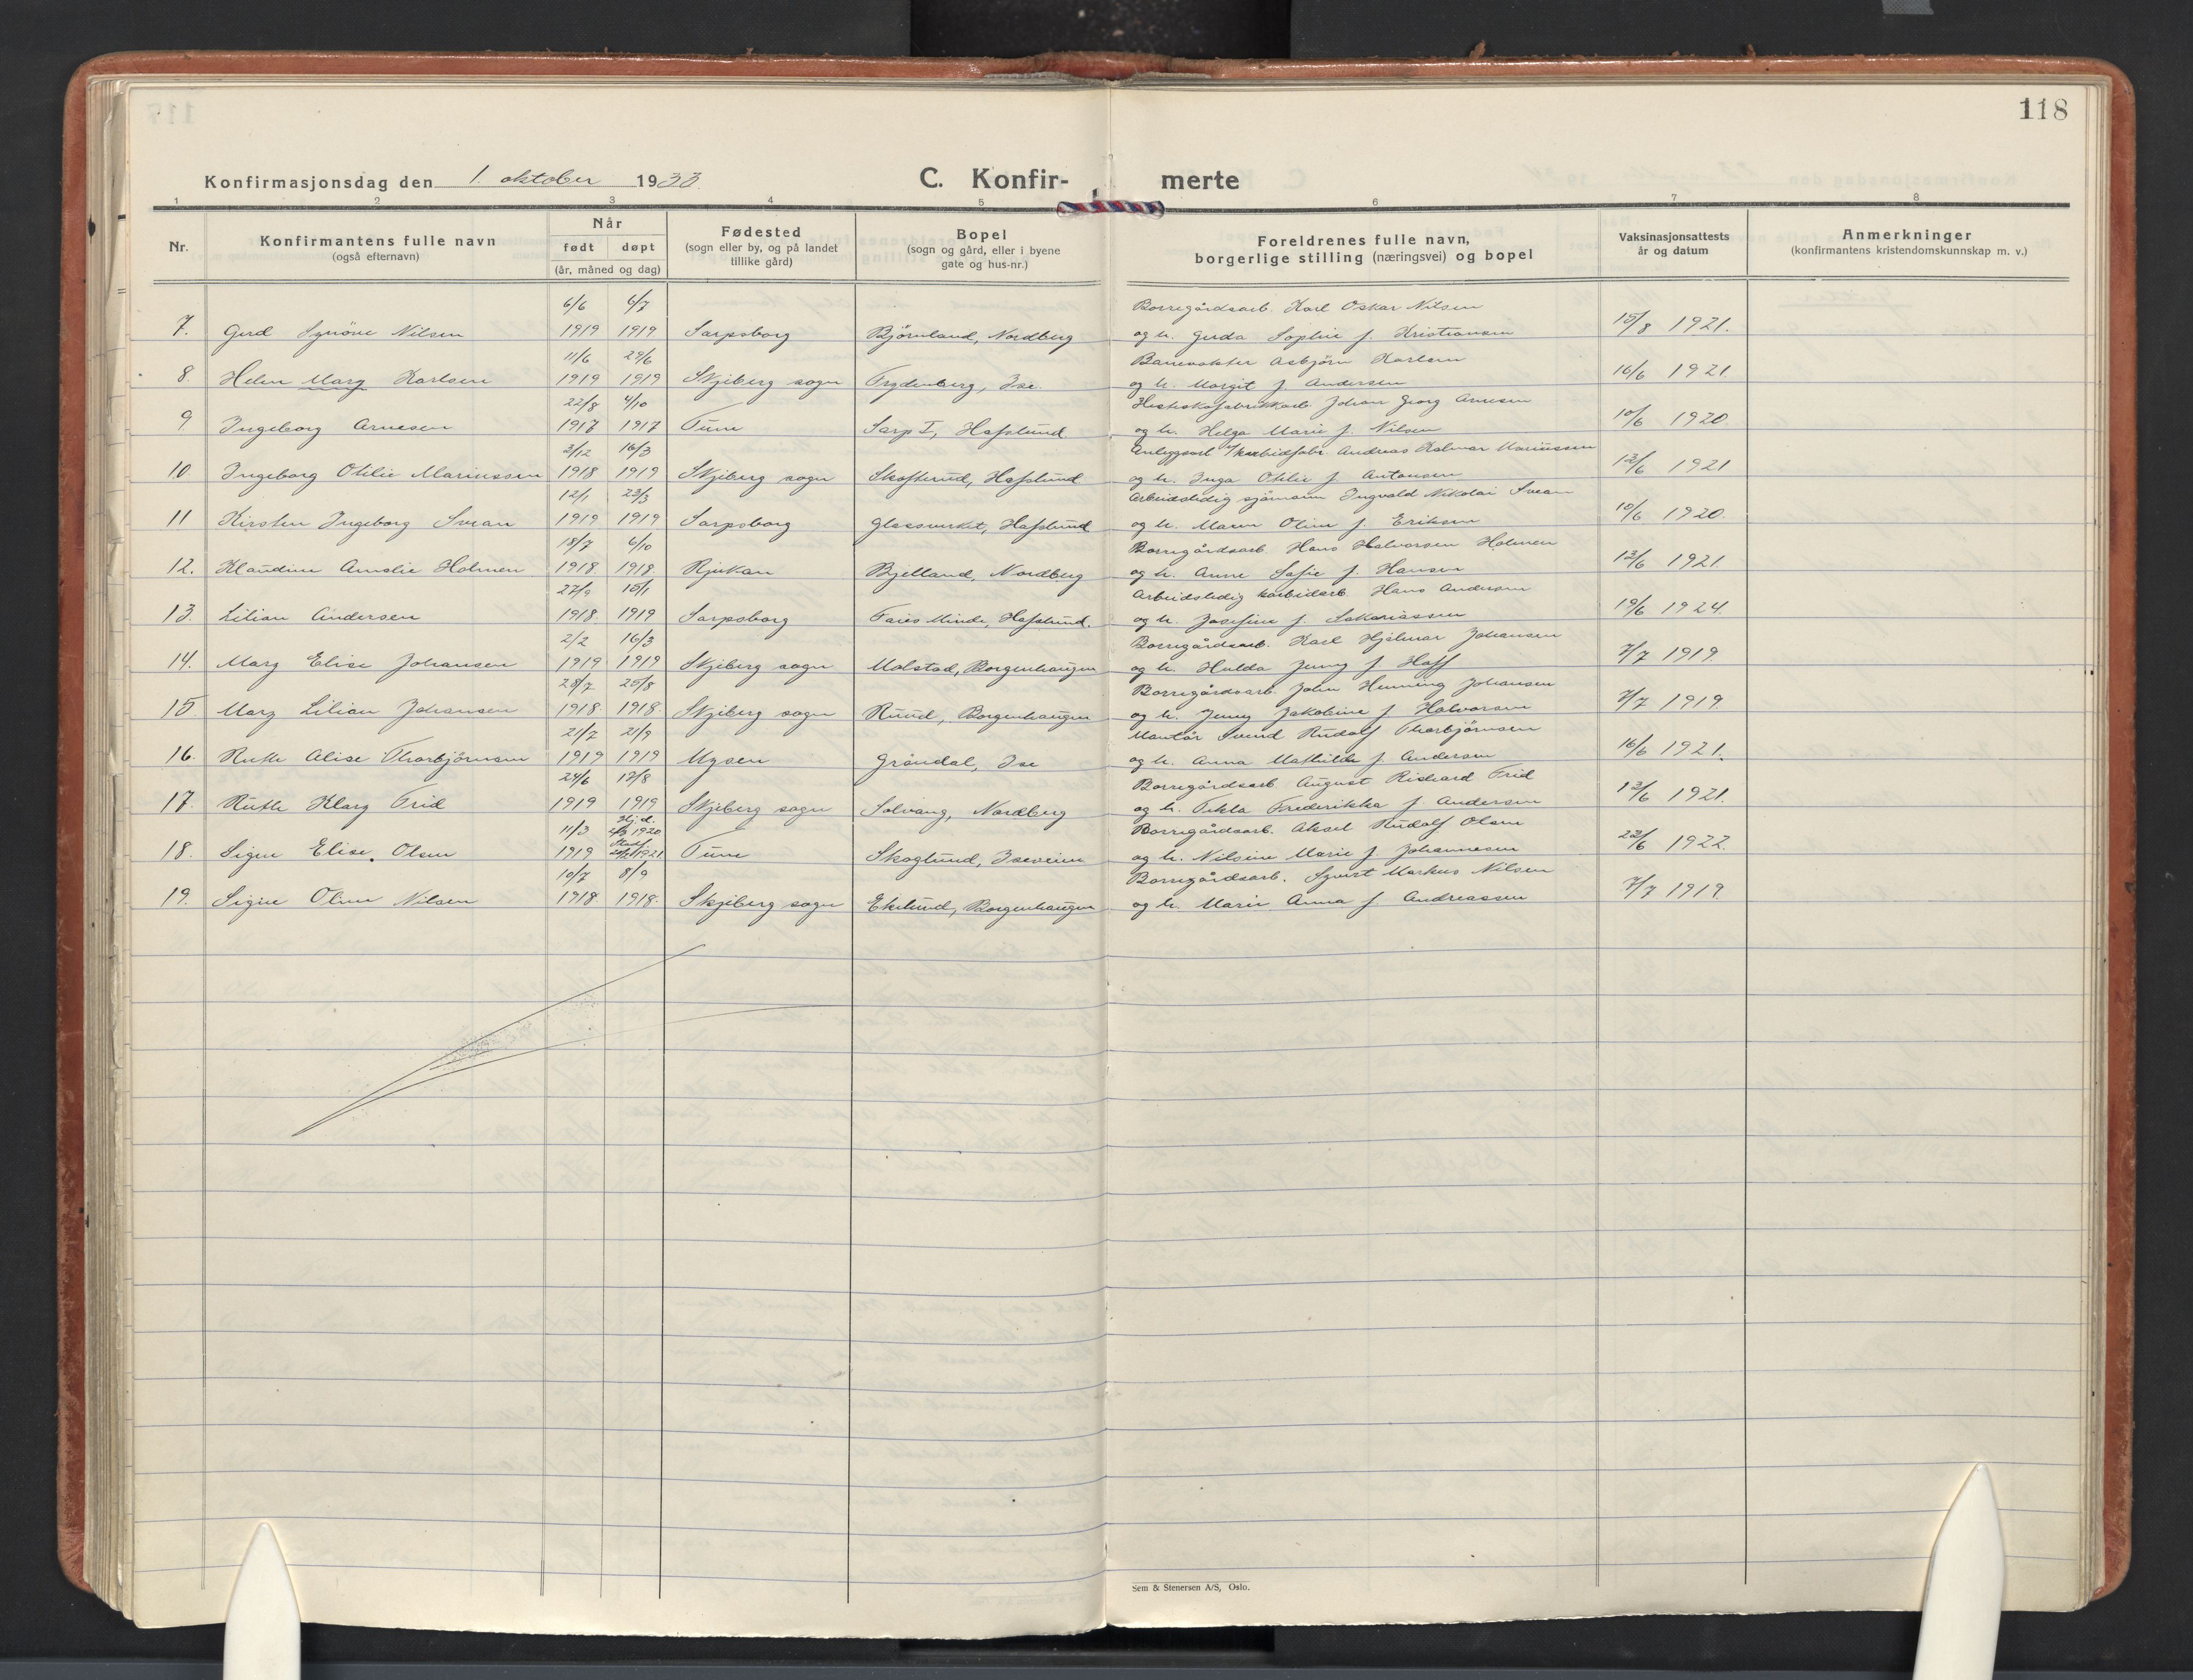 118
Konfirmasjonsdag den 1. oktober 1933
C. Konfir- merte
1 2 3 4 5 6 7 8
Nr.
Konfirmantens fulle navn
(også efternavn)
Når
født døpt
(år, måned og dag)
Fødested
(sogn eller by, og på landet
tillike gård)
Bopel
(sogn og gård, eller i byene
gate og hus-nr.)
Foreldrenes fulle navn,
borgerlige stilling (næringsvei) og bopel
Vaksinasjonsattests
år og datum
Anmerkninger
(konfirmantens kristendomskunnskap m. v.)
6/6 6/7 Borregårdsarb. Karl Oskar Nilsen
7. Gerd Synöve Nilsen 1919 1919 Sarpsborg Björnland, Nordberg og h. Gerda Sophie f. Kristiansen 15/8 1921.
11/6 29/6 Banevokter Asbjörn Karlsen
8. Helen Mary Karlsen 1919 1919 Skjeberg sogn Frydenberg, Ise. og h. Margit f. Andersen 16/6 1921.
22/8 4/10 Hesteskofabrikkarb. Johan Georg Arnesen
9. Ingeborg Arnesen 1917 1917 Tune Sarp I, Hafslund. og h. Helga Marie f. Nilsen 10/6 1920.
3/12 16/3 Anleggsarb. v/karbidfabr. Andreas Kalmar Mariussen
10. Ingeborg Otilie Mariussen 1918 1919 Skjeberg sogn Skofterud, Hafslund og h. Inga Otilie f. Antonsen 13/6 1921
12/1 23/3 Arbeidsledig sjömann Ingvald Nikolai Svean
11 Kirsten Ingeborg Svean 1919 1919 Sarpsborg Glassverket, Hafslund og h. Maren Oline f. Eriksen 10/6 1920.
18/7 6/10 Borregårdsarb. Hans Halvorsen Holmen
12. Klaudine Amalie Holmen 1918. 1918. Rjukan Bjelland, Nordberg og h. Anne Sofie f. Hansen 13/6 1921.
27/9 10/1 Arbeidsledig karbidarb. Hans Andersen
13. Lilian Andersen 1918. 1919 Sarpsborg Faies Minde, Hafslund. og h. Josefine f. Sakariassen 19/6 1924.
2/2 16/3 Borregårdsarb. Karl Hjalmar Johansen
14. Mary Elise Johansen 1919 1919 Skjeberg sogn Molstad, Borgenhaugen og h. Hulda Jenny f. Hoff 7/7 1919.
28/7 25/8 Borregårdsarb. John Henning Johansen
15. Mary Lilian Johansen 1918. 1918. Skjeberg sogn Ruud, Borgenhaugen og h. Jenny Jakobine f. Halvorsen 7/7 1919.
21/7 21/9 Montör Svend Rudolf Thorbjörnsen
16. Ruth Alise Thorbjörnsen 1919 1919 Mysen Gröndal, Ise og h. Anna Mathilde f. Andersen 16/6 1921.
24/6 17/8 Borregårdsarb. August Richard Frid
17. Ruth Klary Frid 1919 1919 Skjeberg sogn Solvang, Nordberg og h. Tekla Frederikka f. Andersen 13/6 1921.
Hj.d.
11/3 4/3 1920 Borregårdsarb. Aksel Rudolf Olsen
Stadf.
18. Signe Elise Olsen 1919 1921 Tune Skoglund, Iseveien og h. Nilsine Marie f. Johannesen 22/6 1922.
10/7 8/9 Borregårdsarb. Syvert Markus Nilsen
19. Signe Oline Nilsen 1918 1918. Skjeberg sogn Ekelund, Borgenhaugen og h. Marie Anna f. Andreassen 7/7 1919.
Sem & Stenersen A/S, Oslo.